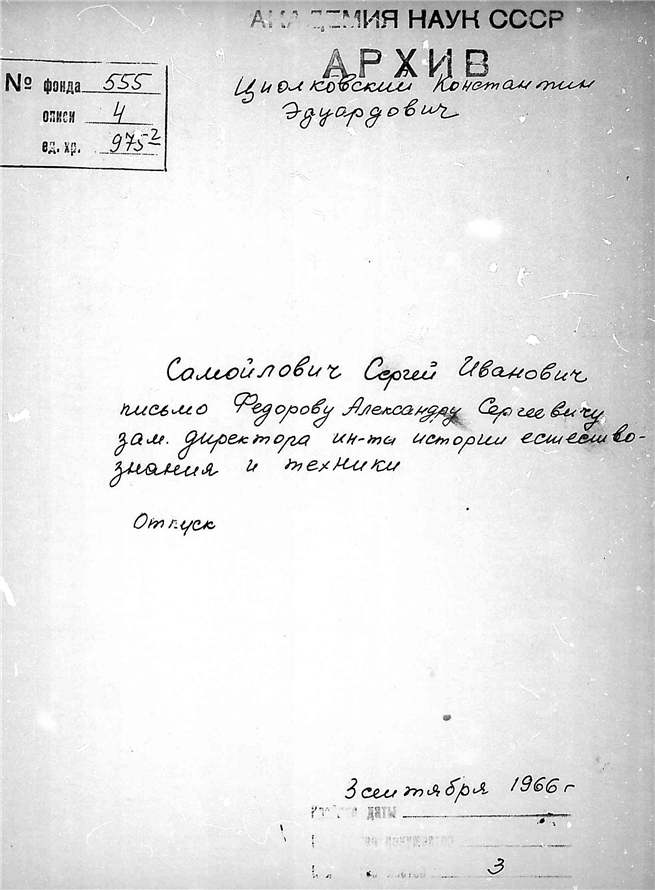 АКАДЕМИЯ НАУК СССР
АРХИВ
№ фонда 555
описи 4
ед. хр. 975-2
Циолковский Константин
Эдуардович
Самойлович Сергей Иванович
письмо Федорову Александру Сергеевичу
зам. директора ин-та истории естество-
знания и техники
Отпуск
3 сентября 1966 г
даты
3